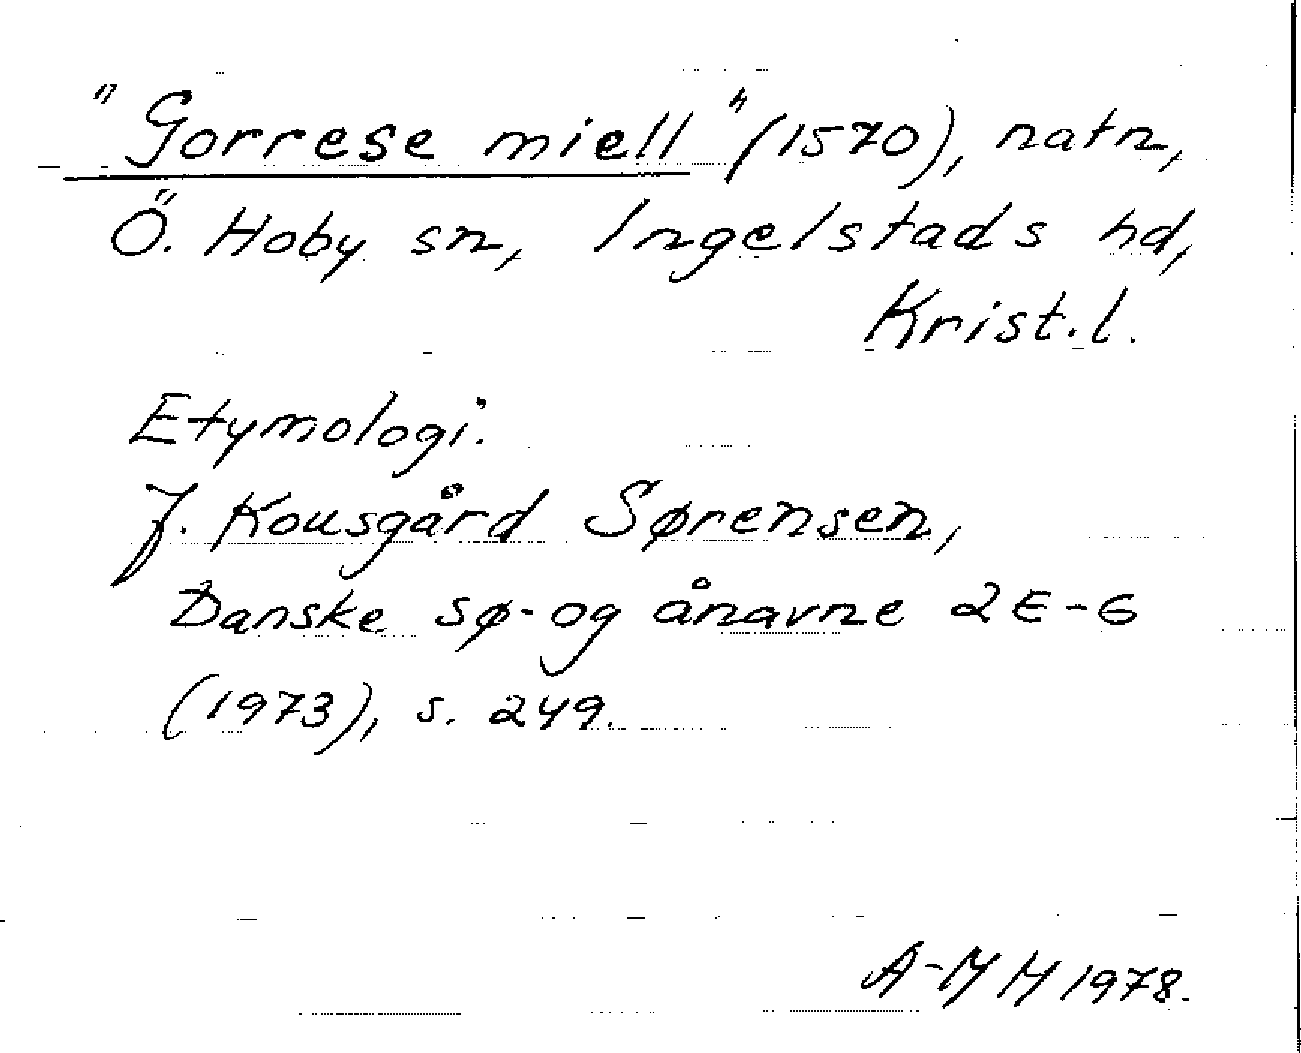 "Gorrese miell" (1570), natn,
Ö. Hoby sn, Ingelstads hd,
Krist.l.
Etymologi.
J. Kousgård Sørensen,
Danske sø- og ånavne 2 E-G
(1973), s. 249.
A-M M 1978.